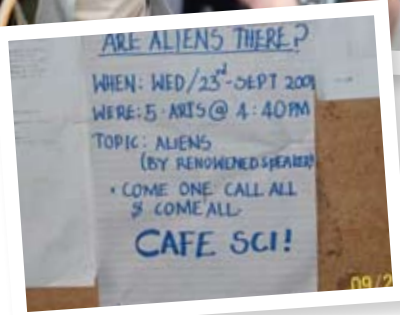 ARE ALIENS THERE?
WHEN: WED/23rd-SEPT 2009
WERE: 5 ARTS @ 4:40PM
TOPIC: ALIENS
(BY RENOWENED SPEAKER)
• COME ONE CALL ALL
& COME ALL.
CAFE SCI!
09/2